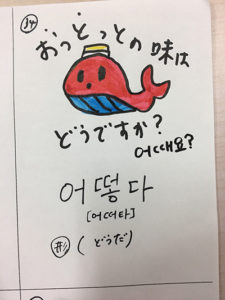 おっとっとの味は
どうですか?
어때요?
어떻다
[어떠타]
形 (どうだ)